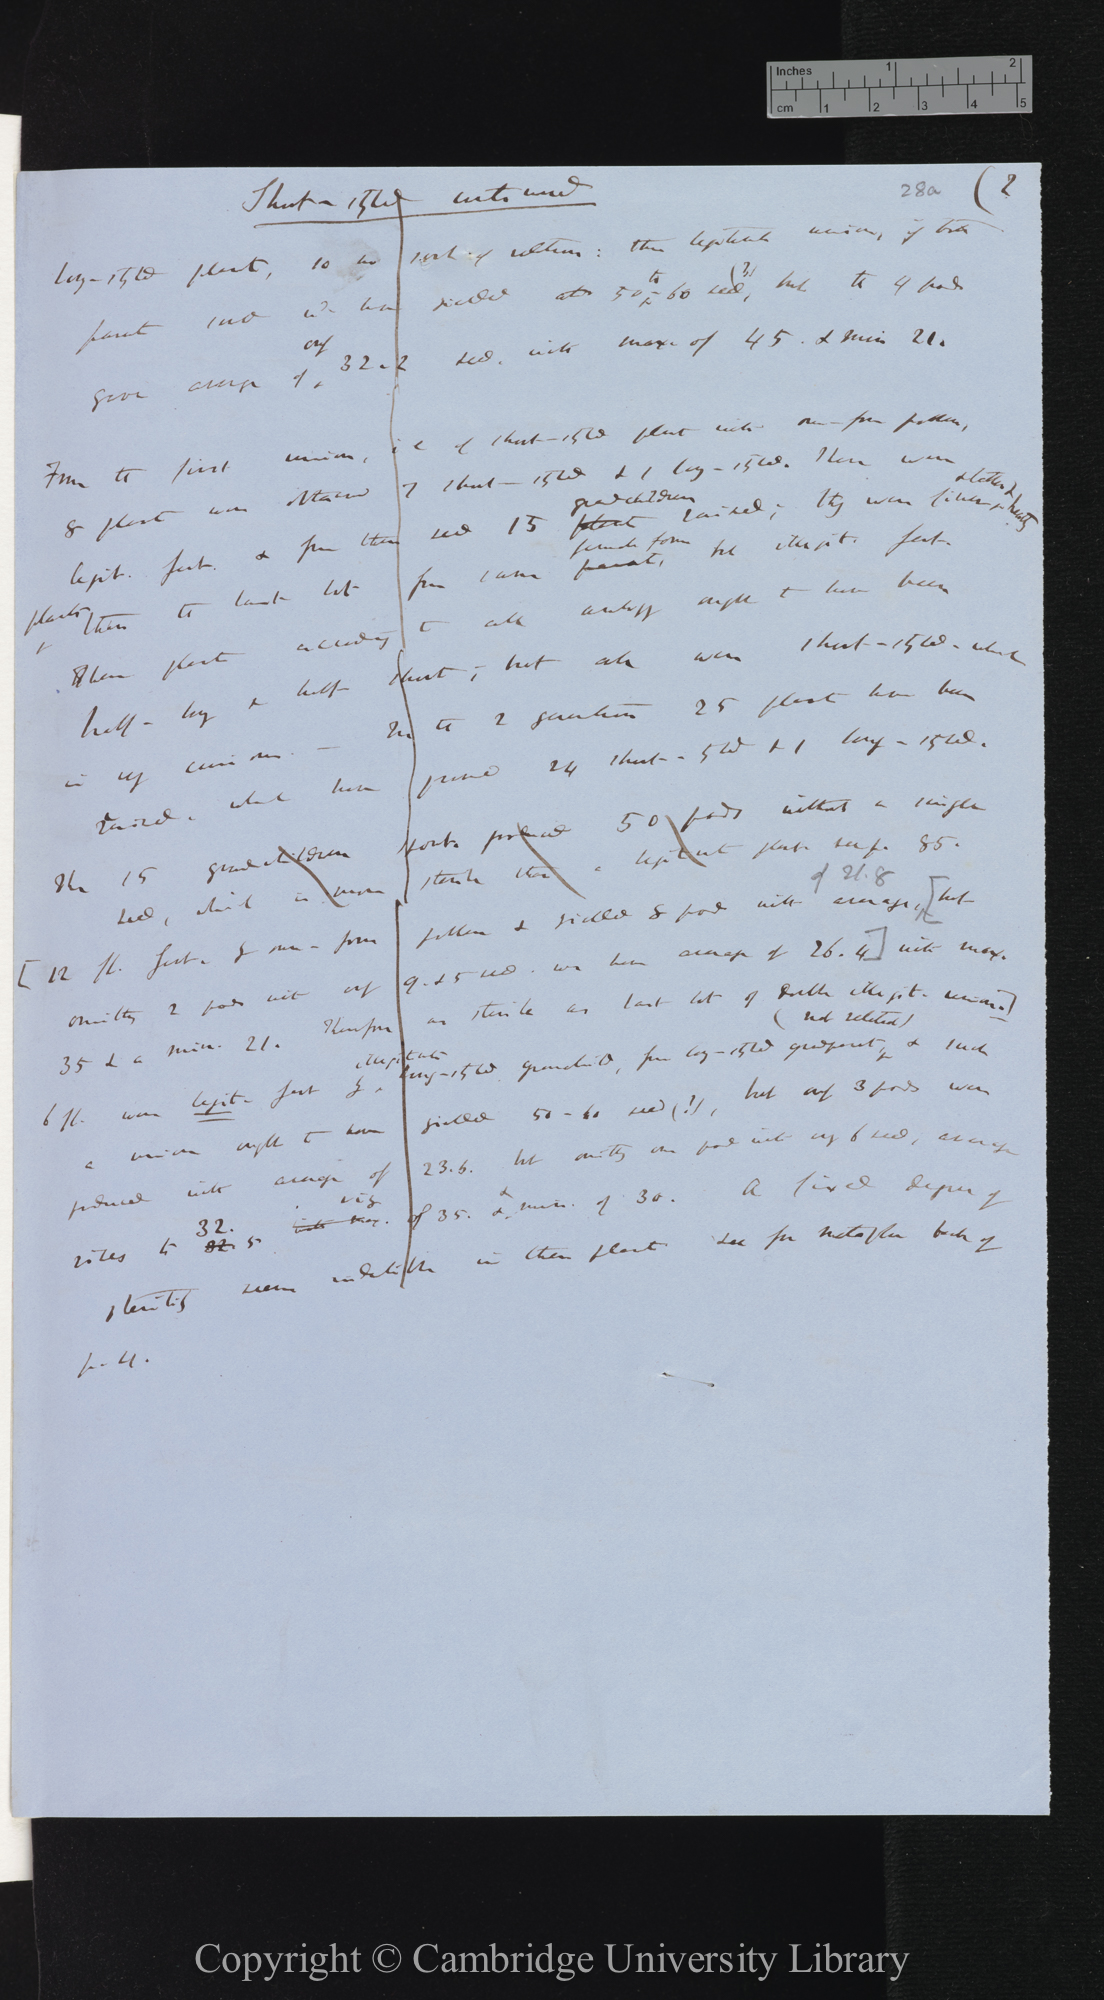 Inches 1 2
cm 1 2 3 4 5
28a (2
Short-styled continued
long-styled plant, so no sort of relation: this legitimate union, if both
parents sound wd have yielded at 50 to 60 seed (?), but the 4 pods
gave average of only 32.2 seed. with max of 45. & min 21.
From the first union, i e of short-styled plant with own-form pollen,
8 plants were obtained 7 short-styled & 1 long-styled. These were
legit. fert. & from their seed 15 plants grandchildren raised; they were finer & taller & healthy
plants, than the last lot from same parent, female form but illegit. fert.
These plants according to all analogy ought to have been
half-long & half short; but all were short-styled. which
is very curious. — In the 2 generations 25 plants have been
raised. which have proved 24 short-styled & 1 long-styled.
The 15 grandchildren spont. produced 50 pods without a single
seed, which is more sterile than a legitimate plant see p. 85.
[12 fl. fert. by own-form pollen & yielded 8 pods with average, of 21.8 [but
omitting 2 pods with only 9. & 5 seed. we have average of 26.4] with max.
35 & a min. 21. Therefore as sterile as last lot of double illegit. unions]
6 fl. were legit. fert by illegitimate long-styled grandchild, from long-styled grandparent, (not related) & such
a union ought to have yielded 50-60 seed (?), but only 3 pods were
produced with average of 23.6. but omitting one pod with only 6 seed, average
rises to 32. 5 with max. of 35. & min. of 30. A fixed degree of
sterility seems indelible in these plants see for metaphor back of
p. 4.
Copyright © Cambridge University Library